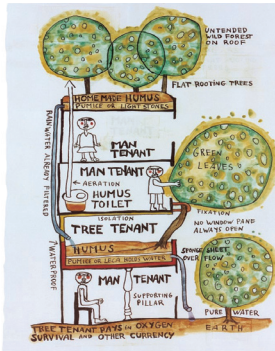 UNTENDED
WILD FOREST
ON ROOF
FLAT ROOTING TREES
HOMEMADE HUMUS
PUMICE OR LIGHT STONES
RAINWATER ALREADY FILTERED
MAN
TENANT
MAN TENANT
AERATION
HUMUS
TOILET
GREEN
LEAVES
FIXATION
NO WINDOW PANE
ALWAYS OPEN
ISOLATION
TREE TENANT
HUMUS
PUMICE OR LECA HOLDS WATER
SPONGE SHEET
OVERFLOW
WATERPROOF
MAN TENANT
SUPPORTING
PILLAR
PURE WATER
EARTH
TREE TENANT DAYS IN OXYGEN
SURVIVAL AND OTHER CURRENCY